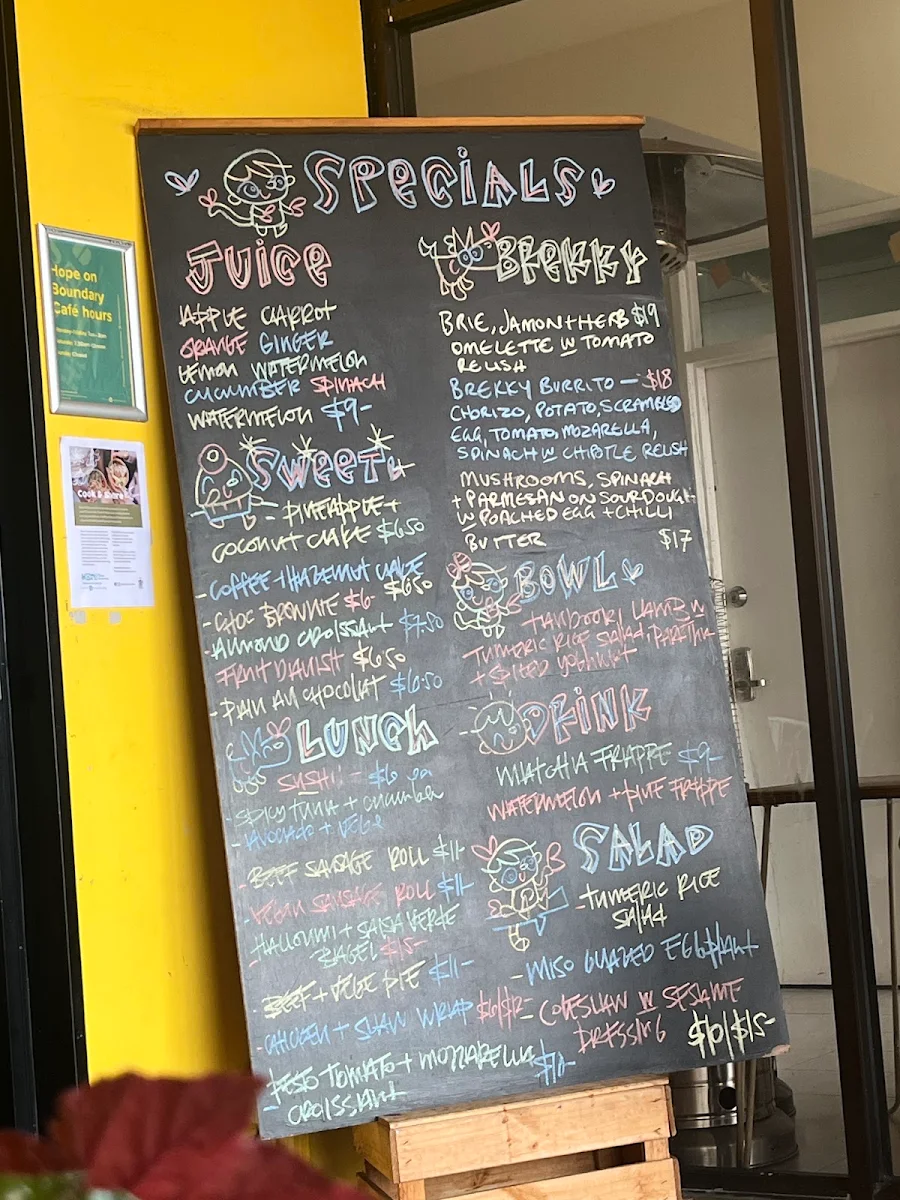 Hope on
Boundary
Café hours
Cook & Share
SPECIALS
JUICE
APPLE CARROT
ORANGE GINGER
LEMON WATERMELON
CUCUMBER SPINACH
WATERMELON $9-
SWEET
- PINEAPPLE +
COCONUT CAKE $6.50
- COFFEE + HAZELNUT CAKE
$6.50
- CHOC BROWNIE $6-
- ALMOND CROISSANT $7.50
- FRUIT DANISH $6.50
- PAIN AU CHOCOLAT $6.50
LUNCH
SUSHI - $6 ea
- SPICY TUNA + CUCUMBER
- AVOCADO + VEGE
- BEEF SAUSAGE ROLL $11-
- VEGAN SAUSAGE ROLL $11-
- HALLOUMI + SALSA VERDE
BAGEL $15-
- BEEF + VEGE PIE $11-
- CHICKEN + SLAW WRAP
- PESTO TOMATO + MOZZARELLA $10-
CROISSANT
BREKKY
BRIE, JAMON + HERB $19
OMELETTE W TOMATO
RELISH
BREKKY BURRITO - $18
CHORIZO, POTATO, SCRAMBLED
EGG, TOMATO, MOZARELLA,
SPINACH W CHIPOTLE RELISH
MUSHROOMS, SPINACH
+ PARMESAN ON SOURDOUGH
W POACHED EGG + CHILLI
BUTTER $17
BOWL
TANDOORI LAMB W
TUMERIC RICE SALAD, PARATHA
+ SPICED YOGHURT
DRINK
MATCHA FRAPPE $9-
WATERMELON + LIME FRAPPE
SALAD
- TUMERIC RICE
SALAD
- MISO GLAZED EGGPLANT
- COLESLAW W SESAME
DRESSING $10/$15-